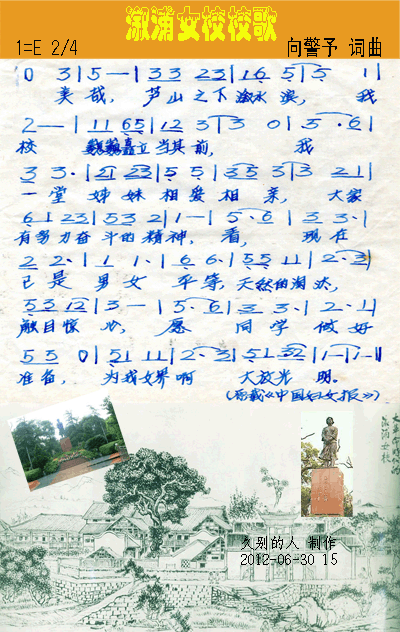 溆浦女校校歌
1=E 2/4 向警予 词曲
0 3|5—|33 23|16 5|5 1|
美哉, 芦山之下溆水滨, 我
2——|11 65|12 3|3 0|5·6|
校 巍巍矗立当其前, 我
3 3·|21 23|5 5|35 3|3 21|
一堂 姊妹 相爱相亲, 大家
61 23|53 2|1—|5·6|3 3·|
有努力奋斗的精神, 看, 现在
2 2·|1 1·|6 6·|55 11|2·3|
已是 男女 平等, 天然的淘汰,
53 12|3—|5·6|3 3·|2·1|
触目惊心, 愿 同学做好
5 5 0|51 11|2·3|51 32|1—|1—||
准备, 为我女界啊 大放光明。
(原载《中国妇女报》)
溆浦女校
久别的人 制作
2012-06-30 15